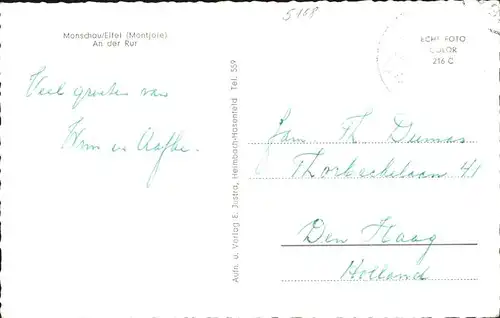 5168
Monschau/Eifel (Montjoie)
An der Rur
ECHT FOTO
COLOR
216 C
Veel groeten van
Wim en Aafke.
Aufn. u. Verlag E. Justra, Heimbach-Hasenfeld Tel. 559
Fam. Th Dumas
Thorbeckelaan 41
Den Haag
Holland